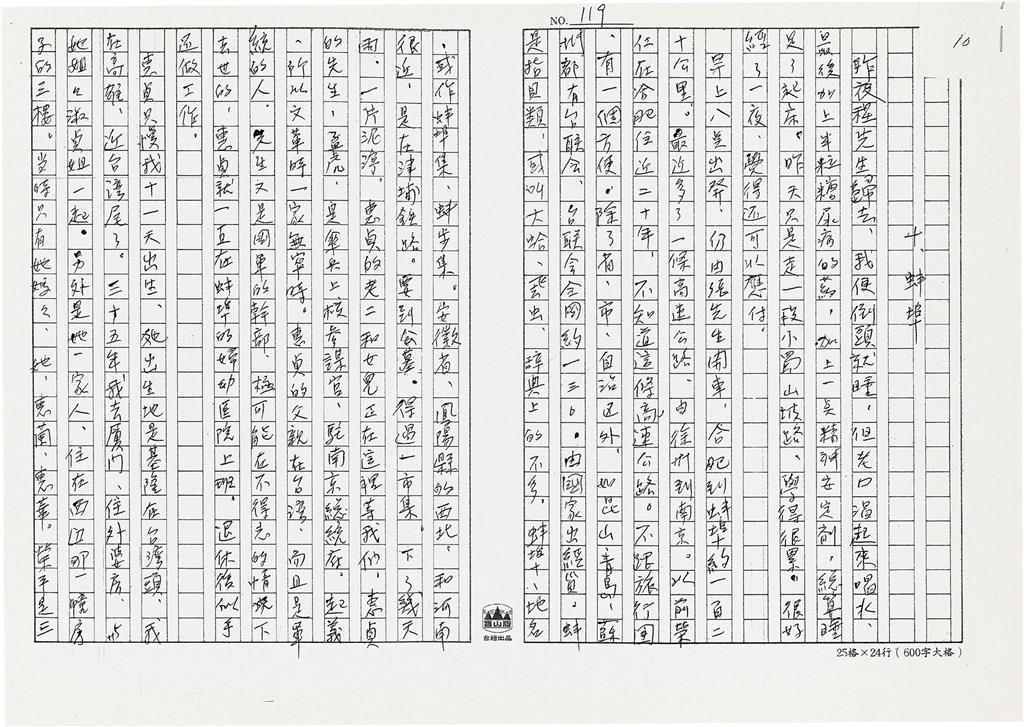 NO. 119
10
十、蚌埠
昨夜程先生歸去、我便倒頭就睡，但老口渴起來喝水、
最後加上半粒糖尿病的葯，加上一點精神安定劑，總算睡
足了起床。昨天只是走一段小蜀山坡路、覺得很累。很好
經了一夜、覺得還可以應付。
早上八點出發、仍由張先生開車、合肥到蚌埠約一百二
十公里。最近多了一條高速公路、由徐州到南京。以前榮
任在合肥住近二十年，不知道這條高速公路。不跟旅行團
、有一個方便。除了省、市、自治区外、如昆山青島、蘇
州都有台联会、台联会全国約一三〇。由國家出經費。蚌
是指貝類、或叫大哈、蚌虫、辞典上的不多。蚌埠十八地名
、或作蚌埠集、蚌步集。安徽省、鳳陽縣的西北、和河南
很近、是在津埔鉄路。要到公墓、得過一市集。下了幾天
雨、一片泥濘。惠貞的老二和女兒正在這裡等我們，惠貞
的先生，孟虎、是傘兵上校参謀官、駐南京総統府。起義
、所以文革時一家無寧時。惠貞的父親在台湾、而且是軍
統的人。先生又是國軍的幹部、極可能在不得志的情境下
去世的，惠貞就一直在蚌埠的婦幼医院上班。退休後似乎
还做工作。
惠貞只慢我十一天出生、她出生地是基隆在台湾頭、我
在高雄、近台湾尾了。三十五年我去厦門、住外婆房、与
她姐々淑貞姐一起。另外是她一家人、住在西邊那一幢房
子的三樓。当時只有她媽々、她、惠蘭、惠華。榮手是三
台經出品
25格×24行（600字大格）